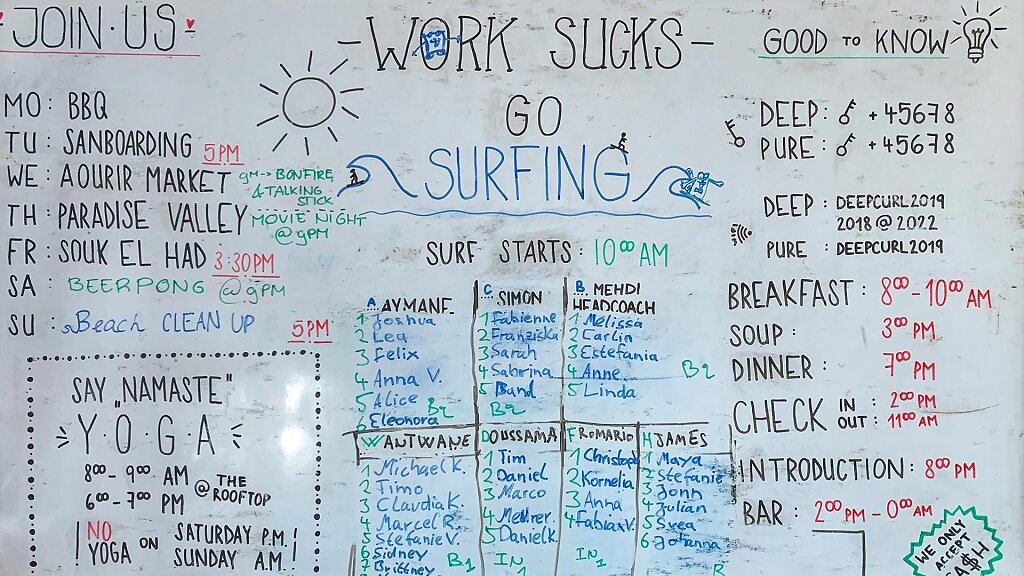 JOIN·US
MO: BBQ
TU: SANBOARDING 5PM
WE: AOURIR MARKET 9M-> BONFIRE
& TALKING
STICK
TH: PARADISE VALLEY MOVIE NIGHT
@ 9PM
FR: SOUK EL HAD 3:30PM
SA: BEERPONG @ 9PM
SU: Beach CLEAN UP 5PM
SAY „NAMASTE"
Y·O·G·A
8⁰⁰- 9⁰⁰ AM
6⁰⁰- 7⁰⁰ PM
@ THE
ROOFTOP
! NO
YOGA ON SATURDAY P.M.
SUNDAY A.M. !
-WORK SUCKS-
GO
SURFING
SURF STARTS: 10⁰⁰ AM
A AYMANE
1 Joshua
2 Lea
3 Felix
4 Anna V.
5 Alice B2
6 Eleonora
C SIMON
1 Fabienne
2 Franziska
3 Sarah
4 Sabrina
5 Band
B2
B MEHDI
HEADCOACH
1 Melissa
2 Carlin
3 Estefania
4 Anne B2
5 Linda
W ANTWANE
1 Michael K.
2 Timo
3 Claudia K.
4 Marcel R.
5 Stefanie V.
6 Sidney
7 Brittney B1
DOUSSAMA
1 Tim
2 Daniel
3 Marco
5 Daniel K.
IN
1
F ROMARIO
1 Christoph
2 Kornelia
3 Anna
4 Fabian V.
IN1
H JAMES
1 Maya
2 Stefanie
3 John
4 Julian
5 Svea
6 Johanna
GOOD TO KNOW
DEEP: +45678
PURE: +45678
DEEP: DEEPCURL2019
2018@2022
PURE: DEEPCURL2019
BREAKFAST: 8⁰⁰-10⁰⁰ AM
SOUP: 3⁰⁰ PM
DINNER: 7⁰⁰ PM
CHECK IN: 2⁰⁰ PM
OUT: 11⁰⁰ AM
INTRODUCTION: 8⁰⁰ PM
BAR: 2⁰⁰ PM - 0⁰⁰ AM
WE ONLY
ACCEPT
CA$H